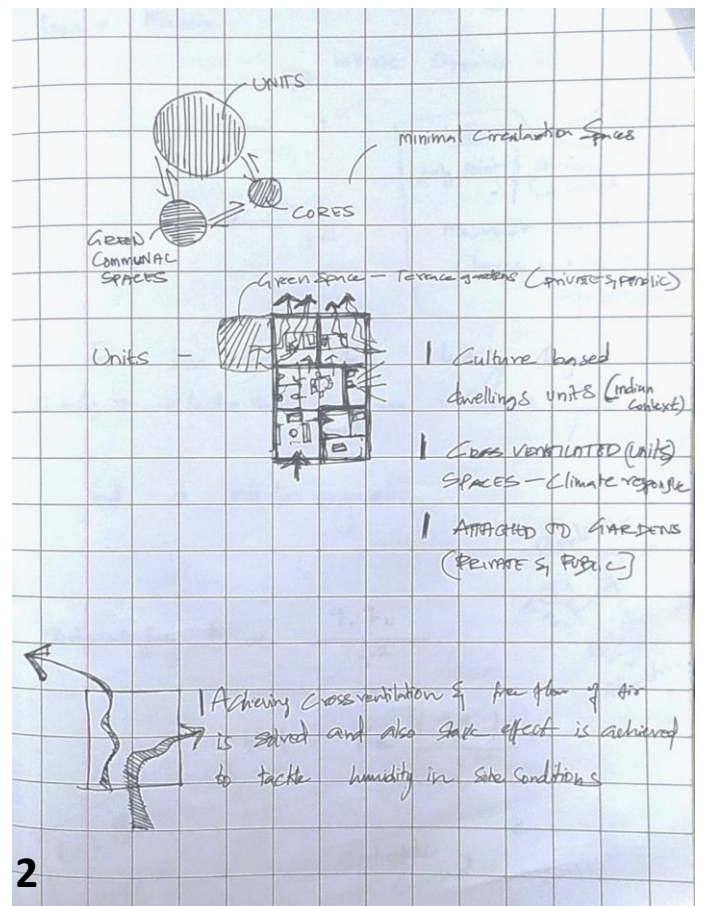 UNITS
minimal Circulation Spaces
CORES
GREEN
COMMUNAL
SPACES
Green Space – Terrace gardens (private & public)
Units –
Culture based
dwellings units (Indian
Context)
CROSS VENTILATED (units)
SPACES – Climate
ATTACHED TO GARDENS
(PRIVATE & PUBLIC]
Achieving Cross ventilation & free flow of Air
is solved and also Stack effect is achieved
to tackle humidity in Site Conditions
2